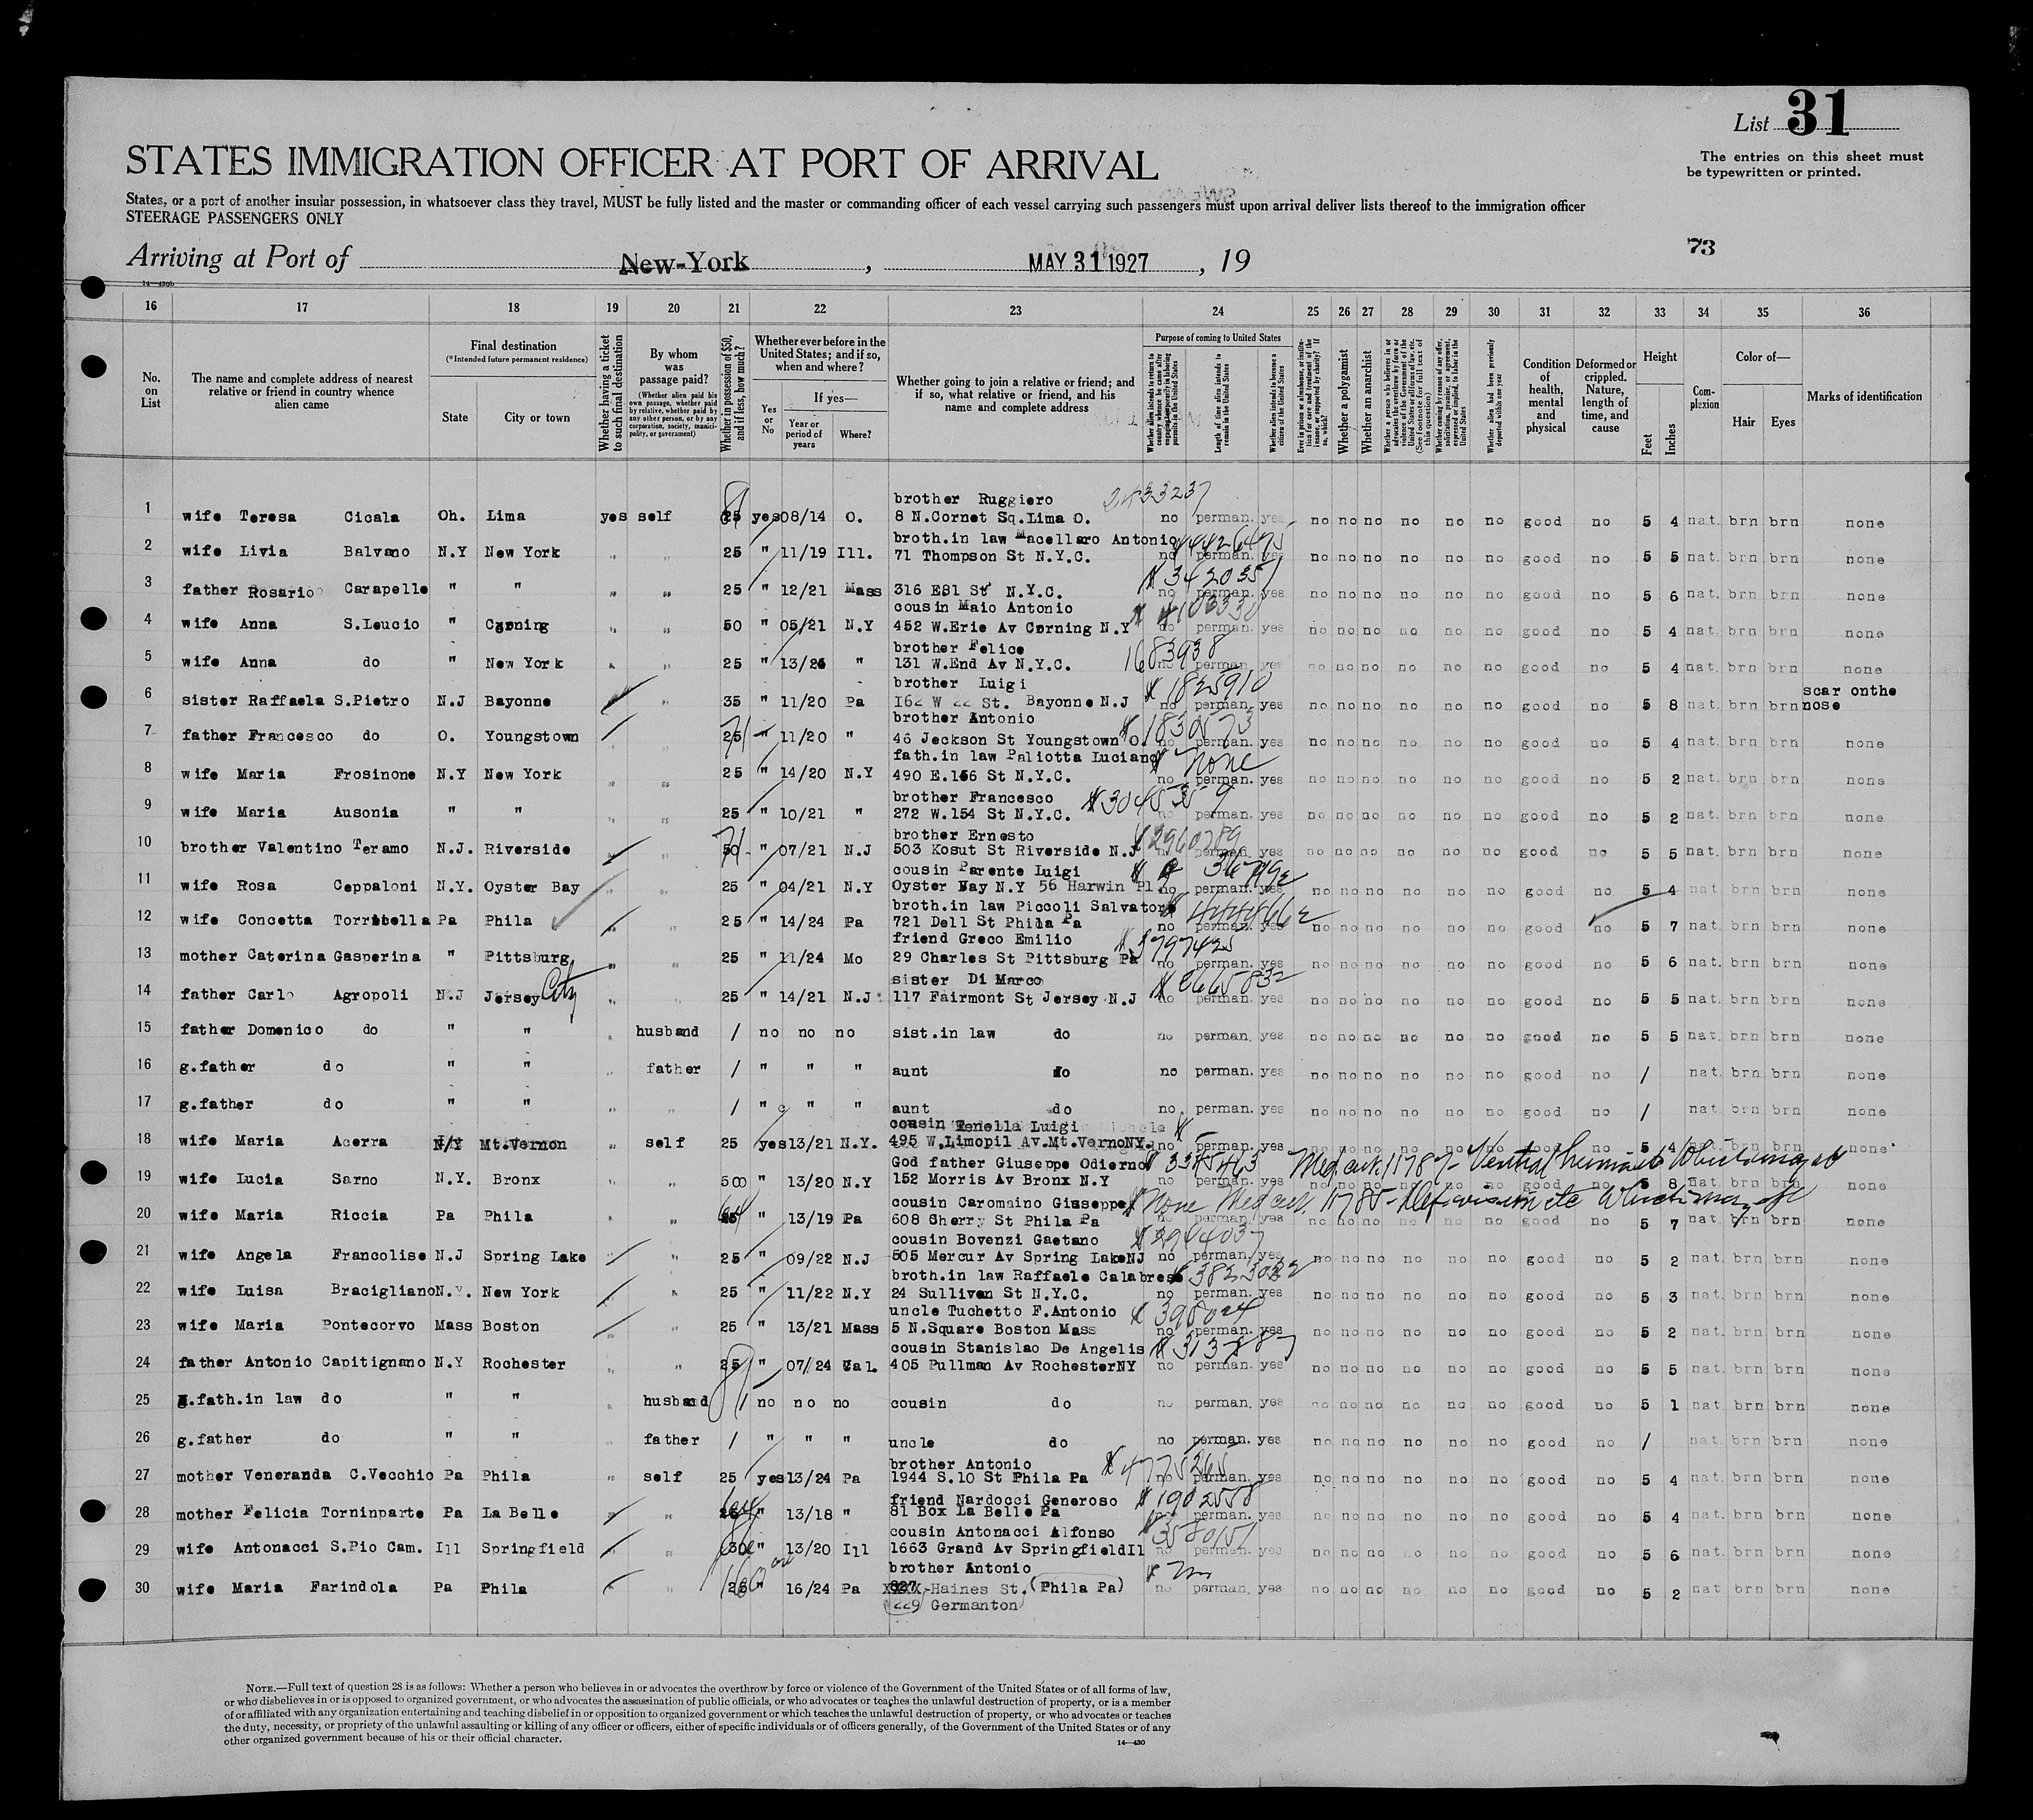 List 31
STATES IMMIGRATION OFFICER AT PORT OF ARRIVAL
The entries on this sheet must
be typewritten or printed.
States, or a port of another insular possession, in whatsoever class they travel, MUST be fully listed and the master or commanding officer of each vessel carrying such passengers must upon arrival deliver lists thereof to the immigration officer
STEERAGE PASSENGERS ONLY
Arriving at Port of New-York, MAY 31 1927, 19
73
14—430b
16 17 18 19 20 21 22 23 24 25 26 27 28 29 30 31 32 33 34 35 36
No. on List
The name and complete address of nearest relative or friend in country whence alien came
Final destination
(*Intended future permanent residence)
State
City or town
Whether having a ticket to such final destination
By whom was passage paid?
(Whether alien paid his own passage, whether paid by relative, whether paid by any other person, or by any corporation, society, municipality, or government)
Whether in possession of $50, and if less, how much?
Whether ever before in the United States; and if so, when and where?
Yes or No
If yes—
Year or period of years
Where?
Whether going to join a relative or friend; and if so, what relative or friend, and his name and complete address
Purpose of coming to United States
Length of time alien intends to remain in the United States
Whether alien intends to become a citizen of the United States
Whether a polygamist
Whether an anarchist
Condition of health, mental and physical
Deformed or crippled. Nature, length of time, and cause
Height
Feet
Inches
Complexion
Color of—
Hair
Eyes
Marks of identification
brother Ruggiero 2433237
1 wife Teresa Cicala Oh. Lima yes self 25 yes 08/14 O. 8 N.Cornet Sq.Lima O. no perman. yes no no no no no no good no 5 4 nat. brn brn none
broth.in law Macellaro Antonio
2 wife Livia Balvano N.Y New York " " 25 " 11/19 Ill. 71 Thompson St N.Y.C. no perman. yes no no no no no no good no 5 5 nat. brn brn none
3 father Rosario Carapelle " " " " 25 " 12/21 Mass 316 E81 St N.Y.C. no perman. yes no no no no no no good no 5 6 nat. brn brn none
cousin Maio Antonio
4 wife Anna S.Leucio " Corning " " 50 " 05/21 N.Y 452 W.Erie Av Corning N.Y no perman. yes no no no no no no good no 5 4 nat. brn brn none
brother Felice 1683938
5 wife Anna do " New York " " 25 " 13/26 " 131 W.End Av N.Y.C. no perman. yes no no no no no no good no 5 4 nat. brn brn none
brother Luigi 1825910 scar onthe
6 sister Raffaela S.Pietro N.J Bayonne " " 35 " 11/20 Pa 162 W 22 St. Bayonne N.J no perman. yes no no no no no no good no 5 8 nat. brn brn nose
brother Antonio 1830573
7 father Francesco do O. Youngstown " 25 " 11/20 " 46 Jeckson St Youngstown O. no perman. yes no no no no no no good no 5 4 nat. brn brn none
fath.in law Paliotta Luciano none
8 wife Maria Frosinone N.Y New York " " 25 " 14/20 N.Y 490 E.156 St N.Y.C. no perman. yes no no no no no no good no 5 2 nat. brn brn none
brother Francesco
9 wife Maria Ausonia " " " " 25 " 10/21 " 272 W.154 St N.Y.C. no perman. yes no no no no no no good no 5 2 nat. brn brn none
brother Ernesto 2960789
10 brother Valentino Teramo N.J. Riverside " " 50 " 07/21 N.J 503 Kosut St Riverside N.J no perman. yes no no no no no no good no 5 5 nat. brn brn none
cousin Parente Luigi
11 wife Rosa Ceppaloni N.Y. Oyster Bay " " 25 " 04/21 N.Y Oyster Bay N.Y 56 Harwin Pl no perman. yes no no no no no no good no 5 4 nat. brn brn none
broth.in law Piccoli Salvatore
12 wife Concetta Torritella Pa Phila " " 25 " 14/24 Pa 721 Dell St Phila Pa no perman. yes no no no no no no good no 5 7 nat. brn brn none
friend Greco Emilio
13 mother Caterina Gasperina " Pittsburg " " 25 " 11/24 Mo 29 Charles St Pittsburg Pa no perman. yes no no no no no no good no 5 6 nat. brn brn none
sister Di Marco
14 father Carlo Agropoli N.J Jersey City " " 25 " 14/21 N.J 117 Fairmont St Jersey N.J no perman. yes no no no no no no good no 5 5 nat. brn brn none
15 father Domenico do " " " husband / no no no sist.in law do no perman. yes no no no no no no good no 5 5 nat. brn brn none
16 g.father do " " " father / " " " aunt do no perman. yes no no no no no no good no / nat. brn brn none
17 g.father do " " " " / " " " aunt do no perman. yes no no no no no no good no / nat. brn brn none
cousin Luigi
18 wife Maria Acerra N/Y Mt.Vernon " self 25 yes 13/21 N.Y. 495 W.Limopil Av.Mt.VernoNY. no perman. yes no no no no no no good no 5 4 nat. brn brn none
God father Giuseppe Odierno Med cert. 11787-
19 wife Lucia Sarno N.Y. Bronx 500 " 13/20 N.Y 152 Morris Av Bronx N.Y no perman. yes 5 8 none
cousin Caromaino Giuseppe None Med cert. 11785-
20 wife Maria Riccia Pa Phila " 25 " 13/19 Pa 608 Cherry St Phila Pa no perman. yes no no no no no no good no 5 7 nat. brn brn none
cousin Bovenzi Gaetano
21 wife Angela Francolise N.J Spring Lake " " 25 " 09/22 N.J 505 Mercur Av Spring LakeNJ no perman. yes no no no no no no good no 5 2 nat. brn brn none
broth.in law Raffaele Calabrese
22 wife Luisa Bracigliano N.Y. New York " 25 " 11/22 N.Y 24 Sullivan St N.Y.C. no perman. yes no no no no no no good no 5 3 nat. brn brn none
uncle Tuchetto F.Antonio
23 wife Maria Pontecorvo Mass Boston " 25 " 13/21 Mass 5 N.Square Boston Mass no perman. yes no no no no no no good no 5 2 nat. brn brn none
cousin Stanislao De Angelis
24 father Antonio Capitignano N.Y Rochester " " 25 " 07/24 Cal. 405 Pullman Av RochesterNY no perman. yes no no no no no no good no 5 5 nat. brn brn none
25 g.fath.in law do " " " husband / no no no cousin do no perman. yes no no no no no no good no 5 1 nat. brn brn none
26 g.father do " " " father / " " " uncle do no perman. yes no no no no no no good no / nat. brn brn none
brother Antonio 4775265
27 mother Veneranda C.Vecchio Pa Phila " self 25 yes 13/24 Pa 1944 S.10 St Phila Pa no perman. yes no no no no no no good no 5 4 nat. brn brn none
friend Nardocci Generoso 1902558
28 mother Felicia Torninparte Pa La Belle " " 25 " 13/18 " 81 Box La Belle Pa no perman. yes no no no no no no good no 5 4 nat. brn brn none
cousin Antonacci Alfonso 3580151
29 wife Antonacci S.Pio Cam. Ill Springfield " " 30 " 13/20 Ill 1663 Grand Av SpringfieldIl no perman. yes no no no no no no good no 5 6 nat. brn brn none
brother Antonio
30 wife Maria Farindola Pa Phila " " 25 " 16/24 Pa 827 Haines St. (Phila Pa) no perman. yes no no no no no no good no 5 2 nat. brn brn none
229 Germanton
NOTE.—Full text of question 28 is as follows: Whether a person who believes in or advocates the overthrow by force or violence of the Government of the United States or of all forms of law,
or who disbelieves in or is opposed to organized government, or who advocates the assassination of public officials, or who advocates or teaches the unlawful destruction of property, or is a member
of or affiliated with any organization entertaining and teaching disbelief in or opposition to organized government or which teaches the unlawful destruction of property, or who advocates or teaches
the duty, necessity, or propriety of the unlawful assaulting or killing of any officer or officers, either of specific individuals or of officers generally, of the Government of the United States or of any
other organized government because of his or their official character.
14—430